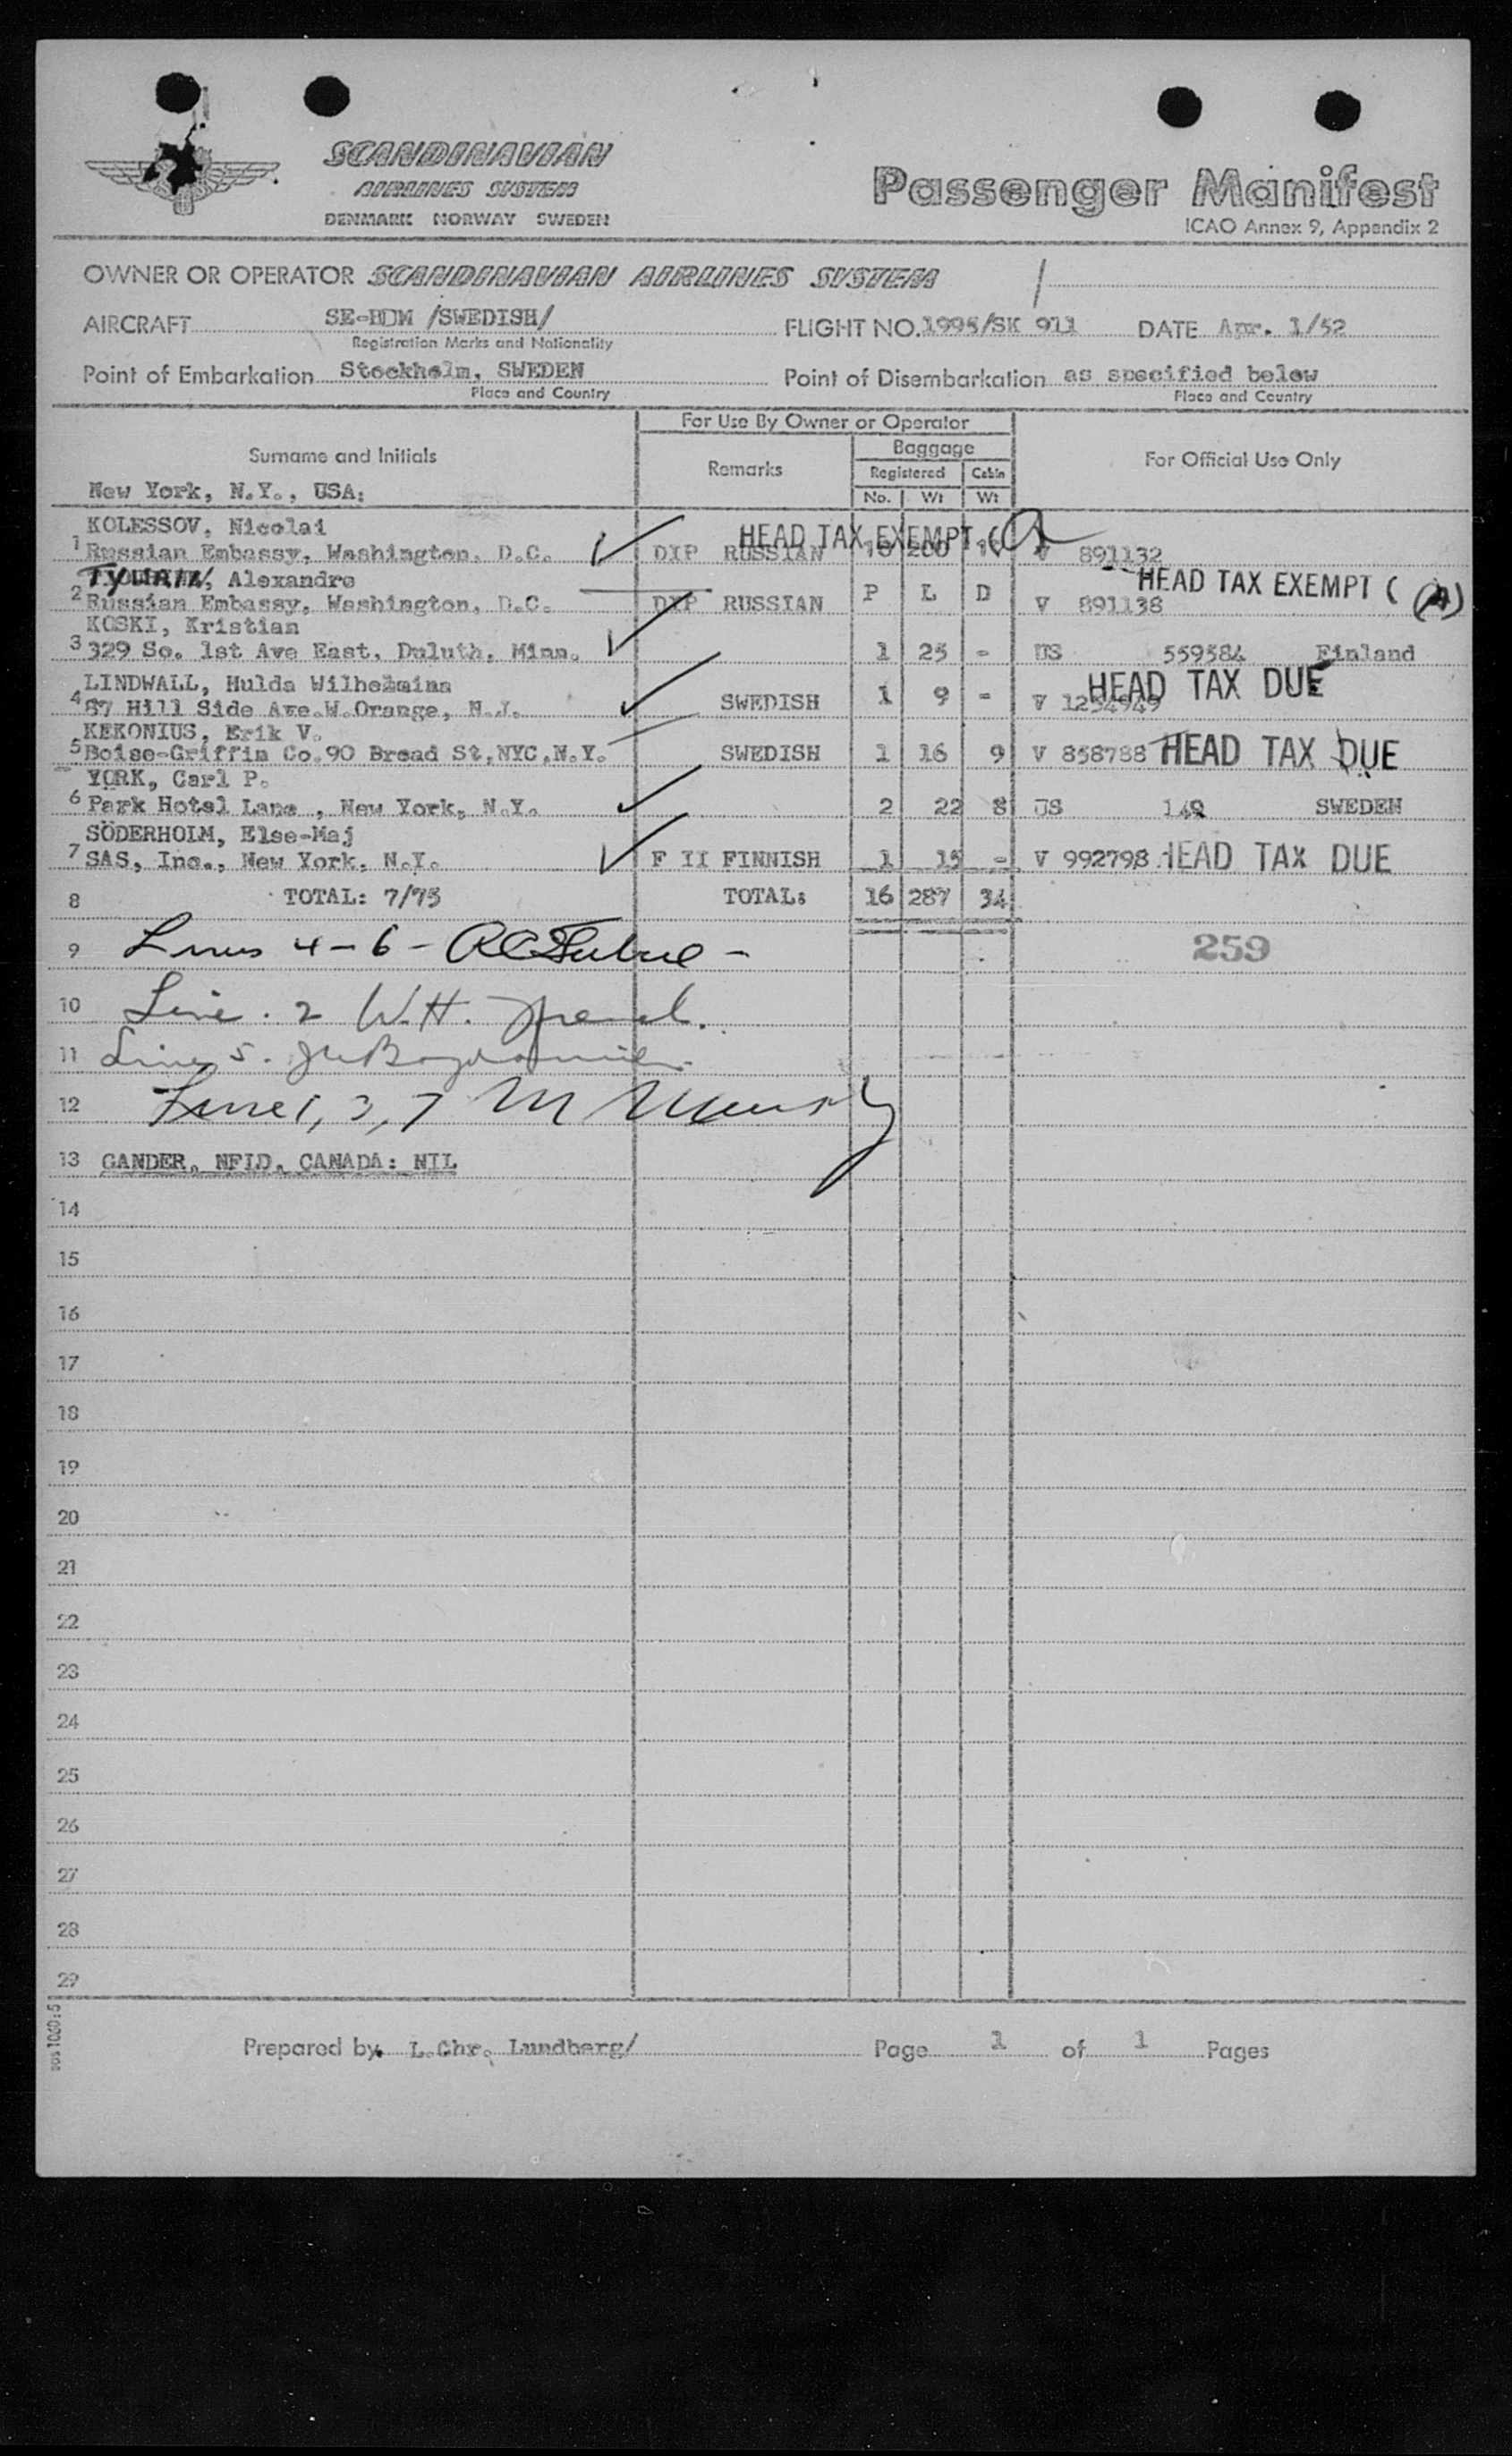 SCANDINAVIAN
AIRLINES SYSTEM
DENMARK NORWAY SWEDEN
Passenger Manifest
ICAO Annex 9, Appendix 2
OWNER OR OPERATOR SCANDINAVIAN AIRLINES SYSTEM
AIRCRAFT SE-BDM /SWEDISH/ FLIGHT NO. 1995/SK 911 DATE Apr. 1/52
Registration Marks and Nationality
Point of Embarkation Stockholm, SWEDEN Point of Disembarkation as specified below
Place and Country Place and Country
For Use By Owner or Operator
Surname and Initials Remarks Baggage For Official Use Only
Registered Cabin
New York, N.Y., USA: No. Wt Wt
KOLESSOV, Nicolai HEAD TAX EXEMPT (
1 Russian Embassy, Washington, D.C. DIP RUSSIAN 10 200 V 891132
Alexandre HEAD TAX EXEMPT (A)
2 Russian Embassy, Washington, D.C. DIP RUSSIAN P L D V 891138
KOSKI, Kristian
3 329 So. 1st Ave East, Duluth, Minn. 1 25 - US 559584 Finland
LINDWALL, Hulda Wilhelmina HEAD TAX DUE
4 87 Hill Side Ave.W.Orange, N.J. SWEDISH 1 9 - V 1254949
KEKONIUS, Erik V.
5 Boise-Griffin Co.90 Broad St,NYC,N.Y. SWEDISH 1 16 9 V 858788 HEAD TAX DUE
YORK, Carl P.
6 Park Hotel Lane, New York, N.Y. 2 22 8 US 149 SWEDEN
SÖDERHOLM, Else-Maj
7 SAS, Inc., New York, N.Y. F II FINNISH 1 15 - V 992798 HEAD TAX DUE
8 TOTAL: 7/75 TOTAL: 16 287 34
9 Lines 4-6- 259
10 Line. 2 W.H.
11 Line 5.
12 Line 1, 3, 7 M
13 GANDER, NFLD, CANADA: NIL
14
15
16
17
18
19
20
21
22
23
24
25
26
27
28
29
sas 1060:5
Prepared by L.Chr. Lundberg/ Page 1 of 1 Pages